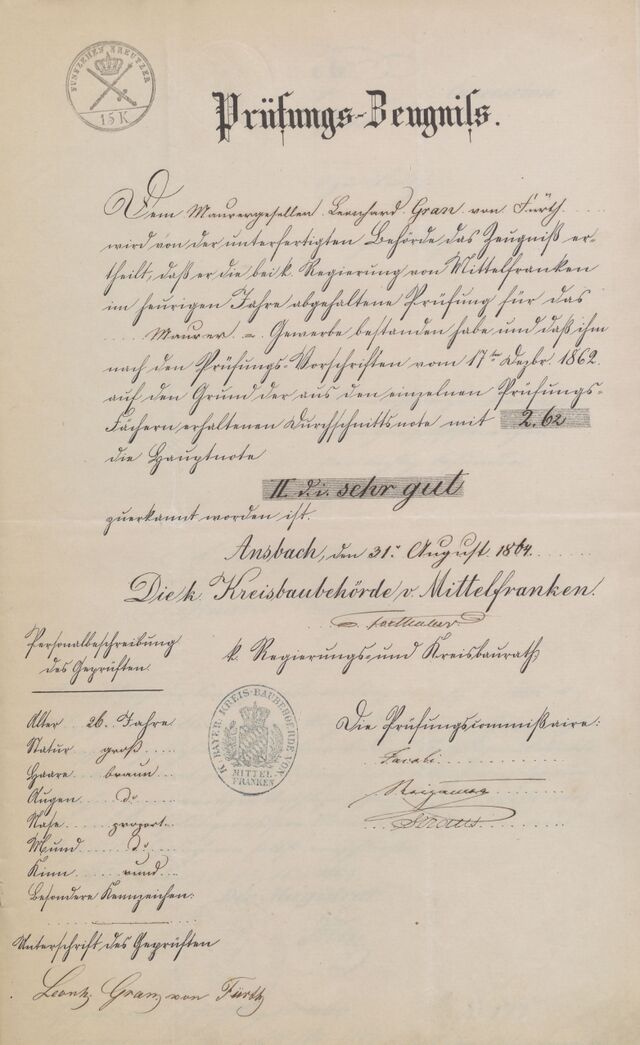 FÜNFZEHEN KREUTZER
15 K
Prüfungs-Zeugniſs.
Dem Maurergesellen Leonhard Gran von Fürth
wird von der unterfertigten Behörde das Zeugniß er-
theilt, daß er die bei k. Regierung von Mittelfranken
im heurigen Jahre abgehaltene Prüfung für das
Maurer = Gewerbe bestanden habe und daß ihm
nach den Prüfungs-Vorschriften vom 17ten Dezbr. 1862.
auf den Grund der aus den einzelnen Prüfungs-
Fächern erhaltenen Durchschnittsnote mit 2.62
die Hauptnote
II d. i. sehr gut
zuerkannt worden ist.
Ansbach, den 31. August 1864.
Die k. Kreisbaubehörde v. Mittelfranken.
k. Regierungs- und Kreisbaurath
Personalbeschreibung
des Geprüften.
Alter 26. Jahre
Statur groß
Haare braun
Augen do
Nase proport.
Mund do
Kinn rund
Besondere Kennzeichen:
Unterschrift des Geprüften
Leonh. Gran von Fürth
K. BAYER. KREIS-BAUBEHOERDE VON
MITTEL
FRANKEN
Die Prüfungscommißaire:
Straus